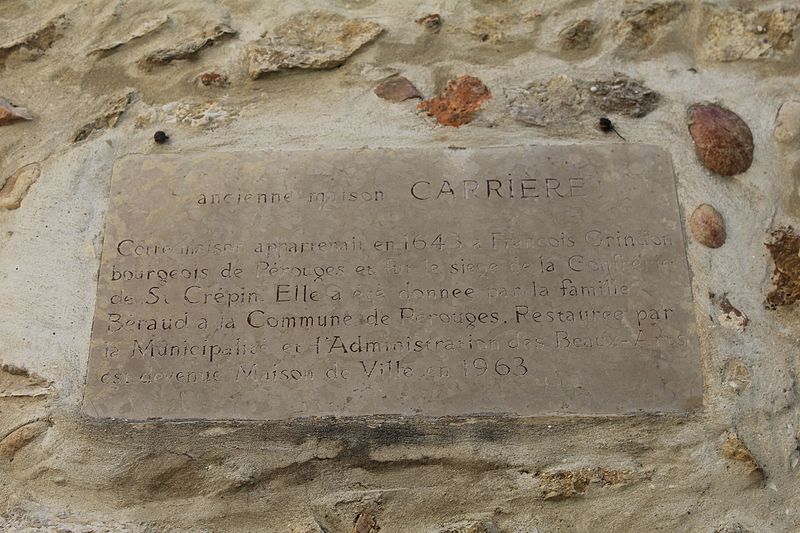 ancienne maison CARRIÈRE
Cette maison appartenait en 1643 à François Grindon
bourgeois de Pérouges et fut le siège de la Confrérie
de St Crépin. Elle a été donnée par la famille
Béraud à la Commune de Pérouges. Restaurée par
la Municipalité et l'Administration des Beaux-Arts
est devenue Maison de Ville en 1963